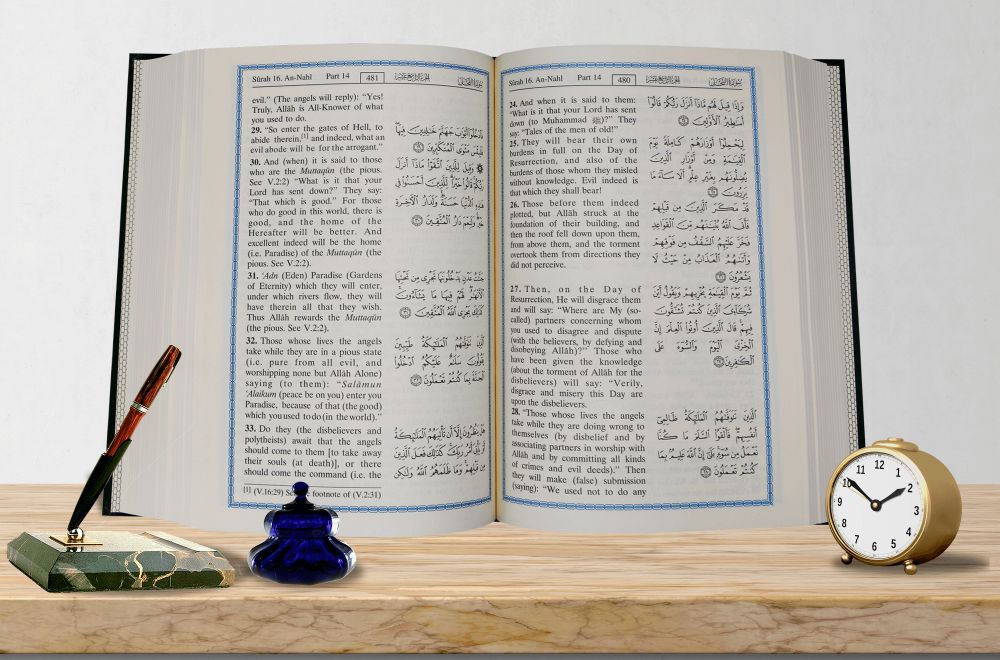 Sûrah 16. An-Nahl Part 14 480 الجزء الرابع عشر سورة النحل
24. And when it is said to them:
"What is it that your Lord has sent
down (to Muhammad ﷺ)?" They
say: "Tales of the men of old!"
25. They will bear their own
burdens in full on the Day of
Resurrection, and also of the
burdens of those whom they misled
without knowledge. Evil indeed is
that which they shall bear!
26. Those before them indeed
plotted, but Allâh struck at the
foundation of their building, and
then the roof fell down upon them,
from above them, and the torment
overtook them from directions they
did not perceive.
27. Then, on the Day of
Resurrection, He will disgrace them
and will say: "Where are My (so-
called) partners concerning whom
you used to disagree and dispute
(with the believers, by defying and
disobeying Allâh)?" Those who
have been given the knowledge
(about the torment of Allâh for the
disbelievers) will say: "Verily,
disgrace and misery this Day are
upon the disbelievers.
28. "Those whose lives the angels
take while they are doing wrong to
themselves (by disbelief and by
associating partners in worship with
Allâh and by committing all kinds
of crimes and evil deeds)." Then
they will make (false) submission
(saying): "We used not to do any
وَإِذَا قِيلَ لَهُم مَّاذَا أَنزَلَ رَبُّكُمْ قَالُوا
أَسَاطِيرُ الْأَوَّلِينَ ٢٤
لِيَحْمِلُوا أَوْزَارَهُمْ كَامِلَةً يَوْمَ
الْقِيَامَةِ وَمِنْ أَوْزَارِ الَّذِينَ
يُضِلُّونَهُم بِغَيْرِ عِلْمٍ أَلَا سَاءَ مَا
يَزِرُونَ ٢٥
قَدْ مَكَرَ الَّذِينَ مِن قَبْلِهِمْ
فَأَتَى اللَّهُ بُنْيَانَهُم مِّنَ الْقَوَاعِدِ
فَخَرَّ عَلَيْهِمُ السَّقْفُ مِن فَوْقِهِمْ
وَأَتَاهُمُ الْعَذَابُ مِنْ حَيْثُ لَا
يَشْعُرُونَ ٢٦
ثُمَّ يَوْمَ الْقِيَامَةِ يُخْزِيهِمْ وَيَقُولُ أَيْنَ
شُرَكَائِيَ الَّذِينَ كُنتُمْ تُشَاقُّونَ
فِيهِمْ قَالَ الَّذِينَ أُوتُوا الْعِلْمَ إِنَّ
الْخِزْيَ الْيَوْمَ وَالسُّوءَ عَلَى
الْكَافِرِينَ ٢٧
الَّذِينَ تَتَوَفَّاهُمُ الْمَلَائِكَةُ ظَالِمِي
أَنفُسِهِمْ فَأَلْقَوُا السَّلَمَ مَا كُنَّا
نَعْمَلُ مِن سُوءٍ بَلَى إِنَّ اللَّهَ عَلِيمٌ بِمَا
كُنتُمْ تَعْمَلُونَ ٢٨
Sûrah 16. An-Nahl Part 14 481 الجزء الرابع عشر سورة النحل
evil." (The angels will reply): "Yes!
Truly, Allâh is All-Knower of what
you used to do.
29. "So enter the gates of Hell, to
abide therein,[1] and indeed, what an
evil abode will be for the arrogant."
30. And (when) it is said to those
who are the Muttaqûn (the pious.
See V.2:2) "What is it that your
Lord has sent down?" They say:
"That which is good." For those
who do good in this world, there is
good, and the home of the
Hereafter will be better. And
excellent indeed will be the home
(i.e. Paradise) of the Muttaqûn (the
pious. See V.2:2).
31. 'Adn (Eden) Paradise (Gardens
of Eternity) which they will enter,
under which rivers flow, they will
have therein all that they wish.
Thus Allâh rewards the Muttaqûn
(the pious. See V.2:2).
32. Those whose lives the angels
take while they are in a pious state
(i.e. pure from all evil, and
worshipping none but Allâh Alone)
saying (to them): "Salâmun
'Alaikum (peace be on you) enter you
Paradise, because of that (the good)
which you used to do (in the world)."
33. Do they (the disbelievers and
polytheists) await that the angels
should come to them [to take away
their souls (at death)], or there
should come the command (i.e. the
فَادْخُلُوا أَبْوَابَ جَهَنَّمَ خَالِدِينَ فِيهَا
فَلَبِئْسَ مَثْوَى الْمُتَكَبِّرِينَ ٢٩
وَقِيلَ لِلَّذِينَ اتَّقَوْا مَاذَا أَنزَلَ
رَبُّكُمْ قَالُوا خَيْرًا لِّلَّذِينَ أَحْسَنُوا فِي
هَٰذِهِ الدُّنْيَا حَسَنَةٌ وَلَدَارُ الْآخِرَةِ
خَيْرٌ وَلَنِعْمَ دَارُ الْمُتَّقِينَ ٣٠
جَنَّاتُ عَدْنٍ يَدْخُلُونَهَا تَجْرِي مِن تَحْتِهَا
الْأَنْهَارُ لَهُمْ فِيهَا مَا يَشَاءُونَ
كَذَٰلِكَ يَجْزِي اللَّهُ الْمُتَّقِينَ ٣١
الَّذِينَ تَتَوَفَّاهُمُ الْمَلَائِكَةُ طَيِّبِينَ
يَقُولُونَ سَلَامٌ عَلَيْكُمُ ادْخُلُوا
الْجَنَّةَ بِمَا كُنتُمْ تَعْمَلُونَ ٣٢
هَلْ يَنظُرُونَ إِلَّا أَن تَأْتِيَهُمُ الْمَلَائِكَةُ
أَوْ يَأْتِيَ أَمْرُ رَبِّكَ كَذَٰلِكَ فَعَلَ الَّذِينَ
مِن قَبْلِهِمْ وَمَا ظَلَمَهُمُ اللَّهُ وَلَٰكِن
[1] (V.16:29) footnote of (V.2:31)
12
1
2
3
4
5
6
7
8
9
10
11